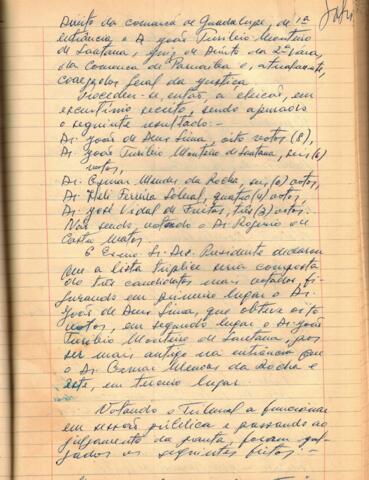 Direito da comarca de Guadalupe, de 1ª
entrância e Dr. João Turíbio Monteiro
de Santana, Juiz de Direito da 2ª Vara,
da Comarca de Parnaíba e, atualmente,
Geral da Justiça.
Procedeu-se, então, a eleição, em
escrutínio secreto, sendo apurado
o seguinte resultado: -
Dr. João de Deus Lima, oito votos (8),
Dr. João Turíbio Monteiro de Santana, seis (6)
votos,
Dr. Osmar Mendes da Rocha, seis (6) votos,
Dr. Heli Ferreira Sobral, quatro (4) votos,
Dr. José Vidal de Freitas, três (3) votos.
Não sendo votado o Dr. Rogério de
Castro Matos.
O Exmo. Sr. Des. Presidente declarou
que a lista tríplice seria composta
dos três candidatos mais votados, fi-
gurando em primeiro lugar o Dr.
João de Deus Lima, que obteve oito
votos, em segundo lugar o Dr. João
Turíbio Monteiro de Santana, por
ser mais antigo na entrância que
o Dr. Osmar Mendes da Rocha e
este, em terceiro lugar.
Voltando o Tribunal a funcionar
em sessão pública e passando ao
julgamento da pauta, foram jul-
gados os seguintes feitos: -